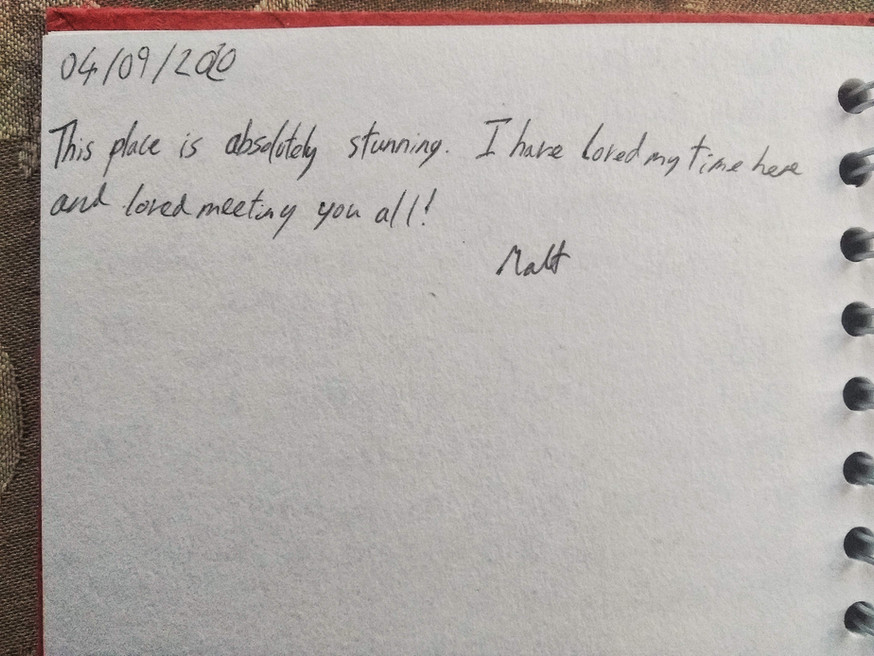 04/09/2020
This place is absolutely stunning. I have loved my time here
and loved meeting you all!
Matt